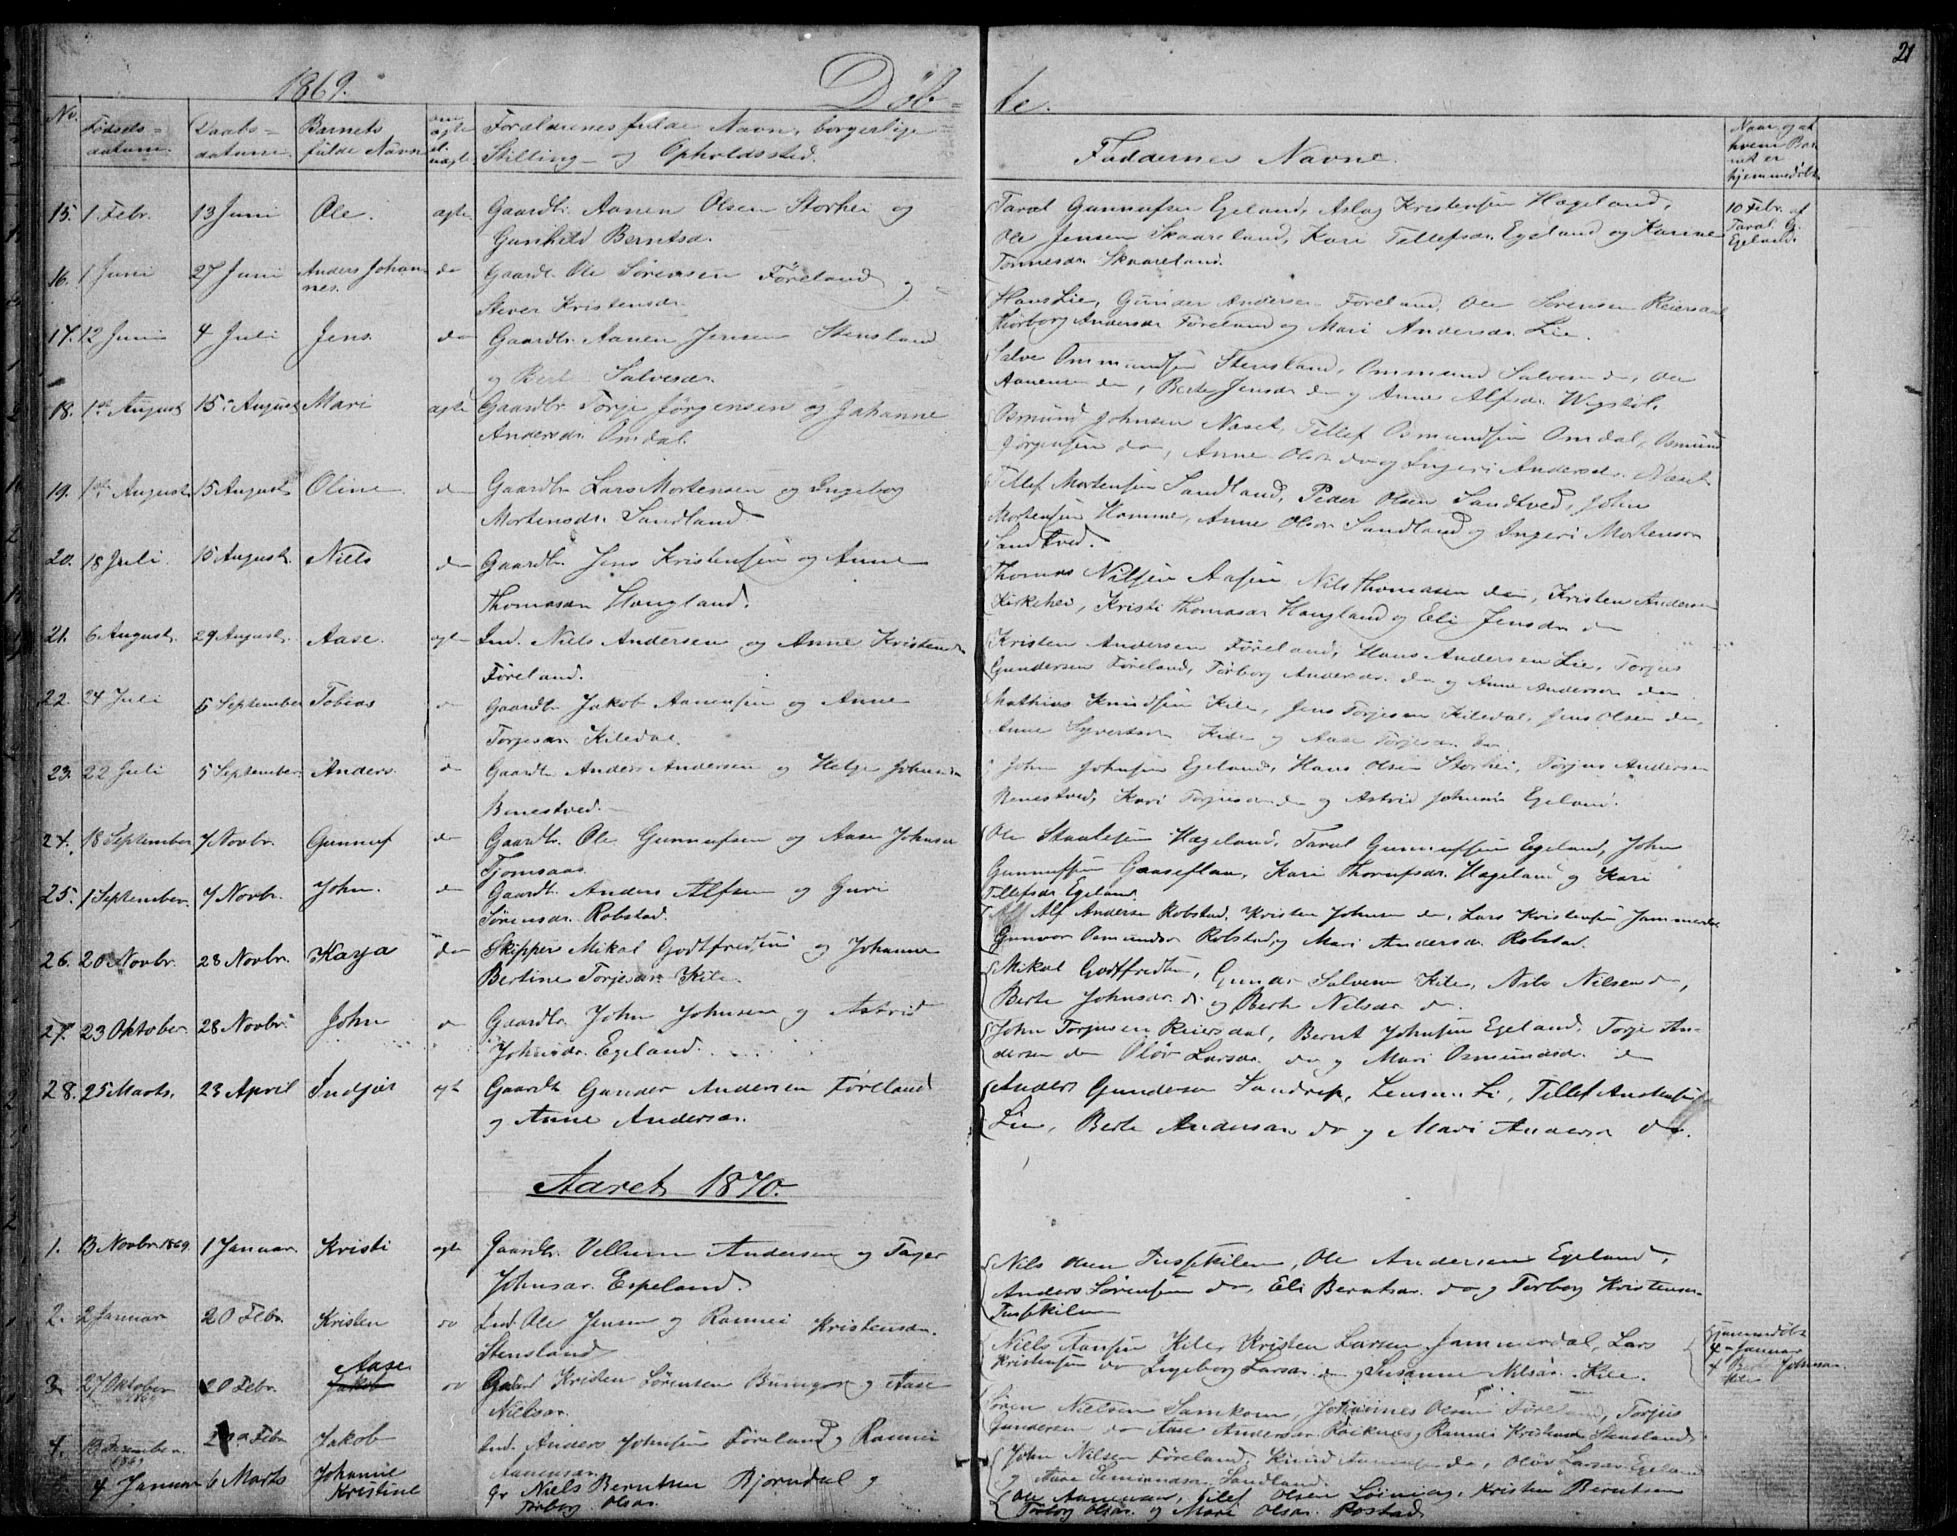 21
1869. Døb-
te.
No. Fødsels-datum. Daabs-datum. Barnets fulde Navn om ægte el. uægte Forældrenes fulde Navn, borgerlige Stilling og Opholdssted.
Faddernes Navne.
Naar og af hvem Barnet er hjemmedøbt
15. 1 Febr. 13 Juni Ole. ægte Gaardbr. Aanen Olsen Storhei og
Gunhild Berntsd.
Taral Gunnufsen Egeland, Aslag Kristensen Hægeland,
Ole Jensen Skaareland, Kari Tellefsdr. Egeland og Karine
Tønnesdr. Skaareland.
10 Febr. af
Taral G.
Egeland
16. 1 Juni 27 Juni Anders Johan- do Gaardbr. Ole Sørensen Føreland og
nes. Kristensdr.
Hans Lie, Gunder Andersen Føreland, Ole Sørensen Reiersdal
Thorborg Andersdr Føreland og Mari Andersdr. Lie.
17. 12 Juni 4 Juli Jens. do Gaardbr. Aanen Jensen Stensland
og Berte Salvesdr.
Salve Ommundsen Stensland, Ommund Salvesen do, Ole
Aanensen do, Berte Jensdr do og Anne Alfsdr.
18. 1ste August 15de August Mari ægte Gaardbr Torje Jørgensen og Johanne
Andersdr. Omdal.
Osmund Johnsen Næset, Tellef Osmundsen Omdal, Osmund
Jørgensen do, Anne Olsdr do og Ingeri Andersdr. Næset
19. 1ste August 15 August Oline do Gaardbr Lars Mortensen og Ingeborg
Mortensdr. Sandland.
Tellef Mortensen Sandland, Peder Olsen Sandtved, John
Mortensen Homme, Anne Olsdr Sandland og Ingeri Mortensdr
Sandtved.
20. 18 Juli. 15 August. Niels do Gaardbr Jens Kristensen og Anne
Thomasdr Haugland.
Thomas Nilsen Aasen, Nils Thomasen do, Kristen Andersen
Kirkehei, Kristi Thomasdr Haugland og Eli Jensdr do
21. 6 August. 29 August. Aase. ægte Ind. Niels Andersen og Anne Kristensdr
Føreland.
Kristen Andersen Føreland, Hans Andersen Lie, Torjus
Gundersen Føreland, Torborg Andersdr. do og Anne Andersdr do
22. 24 Juli 5 September Tobias do Gaardbr Jakob Aanensen og Anne
Torjesdr. Kiledal.
Mathias Knudsen Kile, Jens Torjesen Kiledal, Jens Olsen do,
Anne Syvertsdr Kile og Aase Torjesdr do
23. 22 Juli 5 September Anders do Gaardbr Anders Andersen og Helge Johnsdr
Benestved.
John Johnsen Egeland, Hans Olsen Storhei, Torjus Andersen
Benestved, Kari Torjusdr do og Astrid Johnsdr Egeland.
24. 18 September 7 Novbr. Gunnuf do Gaardbr. Ole Gunnufsen og Aase Johnsdr
Tjomsaas
Ole Staalesen Hægeland, Taral Gunnufsen Egeland, John
Gunnufsen Gaaseflaa, Kari Hægeland og Kari
Tellefsdr Egeland.
25. 1 September. 7 Novbr. John. do Gaardbr. Anders Alfsen og Guri
Sørensdr. Robstad.
Alf Andersen Robstad, Kristen Johnsen do, Lars Kristensen Jammerdal
Gunvor Osmundsdr Robstad, og Mari Andersdr. Robstad.
26. 20 Novbr. 28 Novbr. Kaya do Skipper Mikal Godtfredsen og Johanne
Bertine Torjesdr. Kile.
Mikal Godtfredsen, Gunder Salvesen Kile, Nilsen do,
Berte Johnsdr. do og Berte Nilsdr. do
27. 23 Oktober. 28 Novbr. John do Gaardbr. John Johnsen og Astrid
Johnsdr. Egeland.
John Torjusen Reiersdal, Bernt Johnsen Egeland, Torje An-
dersen do Oløv Larsdr. do og Mari Osmundsd. do
28. 25 Marts. 23 April Indjær ægt Gaardbr Gunder Andersen Føreland
og Anne Andersdr.
Anders Gundersen Lie, Tellef
Lie, Berte Andersdr do og Mari Andersdr do.
Aaret 1870.
1. 13 Novbr 1869. 1 Januar. Kristi ægte Gaardbr. Vellum Andersen og
Johnsdr. Espeland.
Nils Olsen Tusfkilen, Ole Andersen Egeland,
Anders Sørensen do, Eli Berntsdr. do og Torborg Kristensdr
2. 2 Januar 20 Febr. Kristen do Ind. Ole Jensen og Rannei Kristensdr.
Stensland
Niels Kile, Kristen Larsen Jammerdal, Lars
Kristensen do Ingeborg Larsdr. do og Susanne Nilsdr. Kile.
Hjemmedøbt
4 Januar
Johnsdr.
Kile
3. 27 Oktober 1869 20 Febr. Aase Jakob do Gaard Kristen Sørensen og Aase
Nielsdr.
Søren Nielsen Samkom, Johannes Olsen Føreland, Torjus
Gundersen do Aase Andersdr. og Rannei Kristensdr Stensland
4. 13 Dezember 1869 20 Febr. Jakob Ind. Anders Johnsen Føreland og Rannei
Aanensdr.
John Nilsen Føreland, Knud Aanensen do, Oløv Larsdr Egeland
og Aase Sandland.
4 Januar 6 Marts Johanne
Kristine
Niels Berntsen Bjørndal og
Torborg Olsdr.
Ole Aanensen, Tellef Olsen Løining, Kristen Berntsen
Torborg Olsdr. og Mari Olsdr.